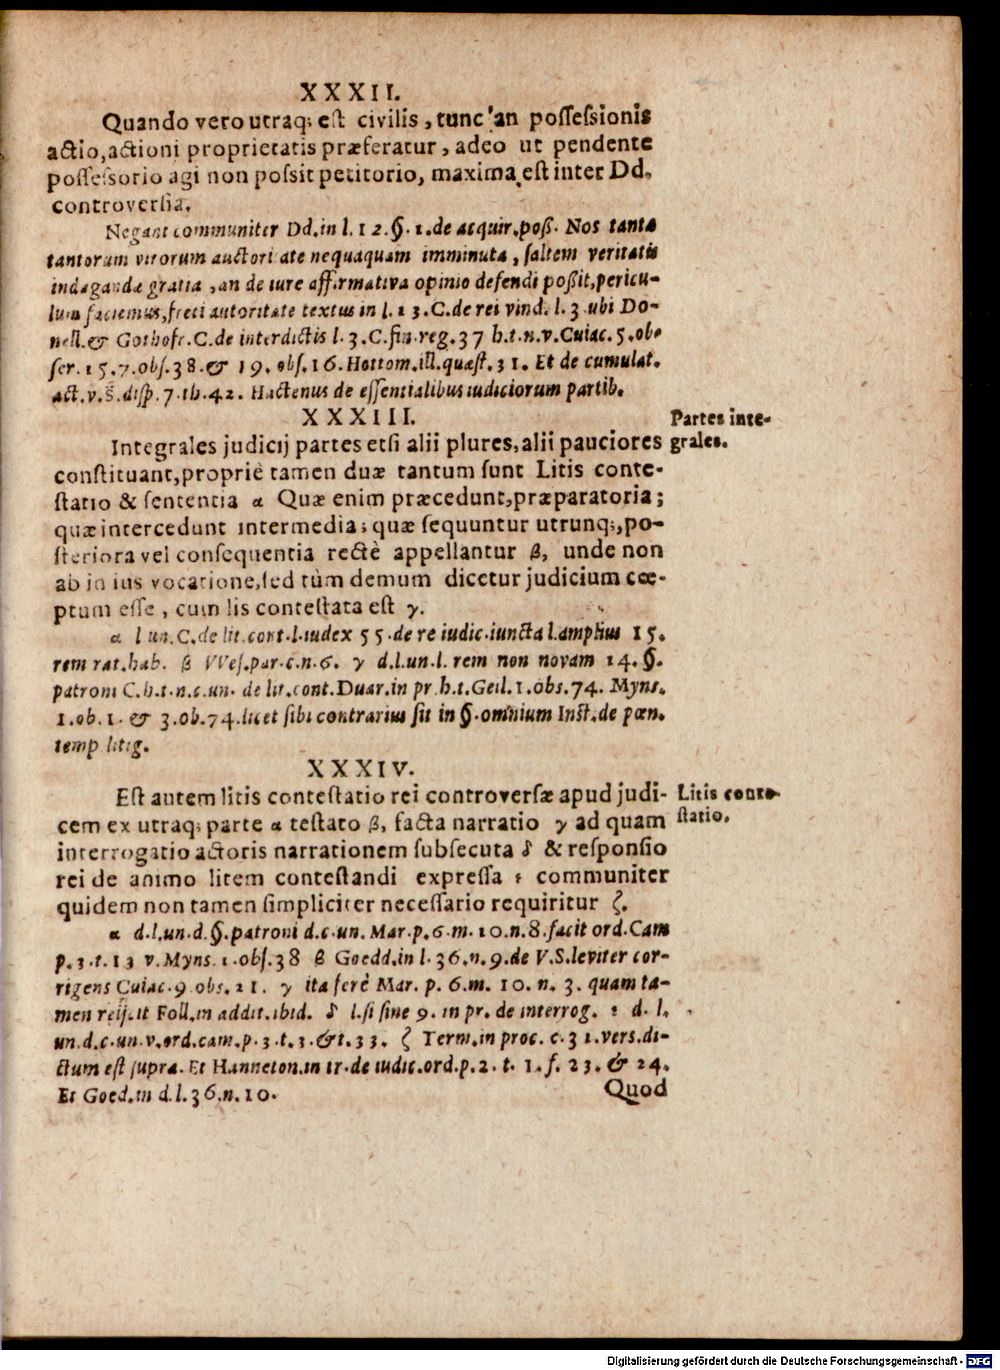 XXXII.
Quando vero utraq; est civilis, tunc an possessionis
actio, actioni proprietatis præferatur, adeo ut pendente
possessorio agi non possit petitorio, maxima est inter Dd.
controversia.
Negant communiter Dd. in l. 12. §. 1. de acquir. poß. Nos tanta
tantorum virorum auctoritate nequaquam imminuta, saltem veritatis
indagandæ gratia, an de iure affirmativa opinio defendi poßit, pericu-
lum faciemus, freti autoritate textus in l. 13. C. de rei vind. l. 3 ubi Do-
nell. & Gothofr. C. de interdictis l. 3. C. fin. reg. 37 h. t. n. v. Cuiac. 5. ob-
ser. 15. 7. obs. 38. & 19. obs. 16. Hottom. ill. quæst. 31. Et de cumulat.
act. v. s. disp. 7. th. 42. Hactenus de essentialibus iudiciorum partib.
XXXIII.
Partes inte-
grales.
Integrales judicij partes etsi alii plures, alii pauciores
constituant, propriè tamen duæ tantum sunt Litis conte-
statio & sententia α Quæ enim præcedunt, præparatoria;
quæ intercedunt intermedia; quæ sequuntur utrunq;, po-
steriora vel consequentia rectè appellantur β, unde non
ab in ius vocatione, sed tùm demum dicetur judicium cœ-
ptum esse, cum lis contestata est γ.
α l un. C. de lit. cont. l. iudex 55. de re iudic. iuncta l. amplius 15.
rem rat. hab. β VVes. par. c. n. 6. γ d. l. un. l. rem non novam 14. §.
patroni C. h. t. n. c. un. de lit. cont. Duar. in pr. h. t. Geil. 1. obs. 74. Myns.
1. ob. 1. & 3. ob. 74. licet sibi contrarius sit in §. omnium Inst. de pœn.
temp litig.
XXXIV.
Litis conte-
statio.
Est autem litis contestatio rei controversæ apud judi-
cem ex utraq; parte α testato β, facta narratio γ ad quam
interrogatio actoris narrationem subsecuta δ & responsio
rei de animo litem contestandi expressa ε communiter
quidem non tamen simpliciter necessario requiritur ζ.
α d. l. un. d. §. patroni d. c. un. Mar. p. 6. m. 10. n. 8. facit ord. Cam
p. 3. t. 13 v. Myns. 1. obs. 38 β Goedd. in l. 36. n. 9. de V. S. leviter cor-
rigens Cuiac. 9 obs. 21. γ ita ferè Mar. p. 6. m. 10. n. 3. quam ta-
men reijcit Foll. in addit. ibid. δ l. si sine 9. in pr. de interrog. ε d. l.
un. d. c. un. v. ord. cam. p. 3. t. 3. & t. 33. ζ Term. in proc. c. 31. vers. di-
ctum est supra. Et Hanneton. in tr. de iudic. ord. p. 2. t. 1. f. 23. & 24.
Et Goed. in d. l. 36. n. 10.
Quod
Digitalisierung gefördert durch die Deutsche Forschungsgemeinschaft - DFG